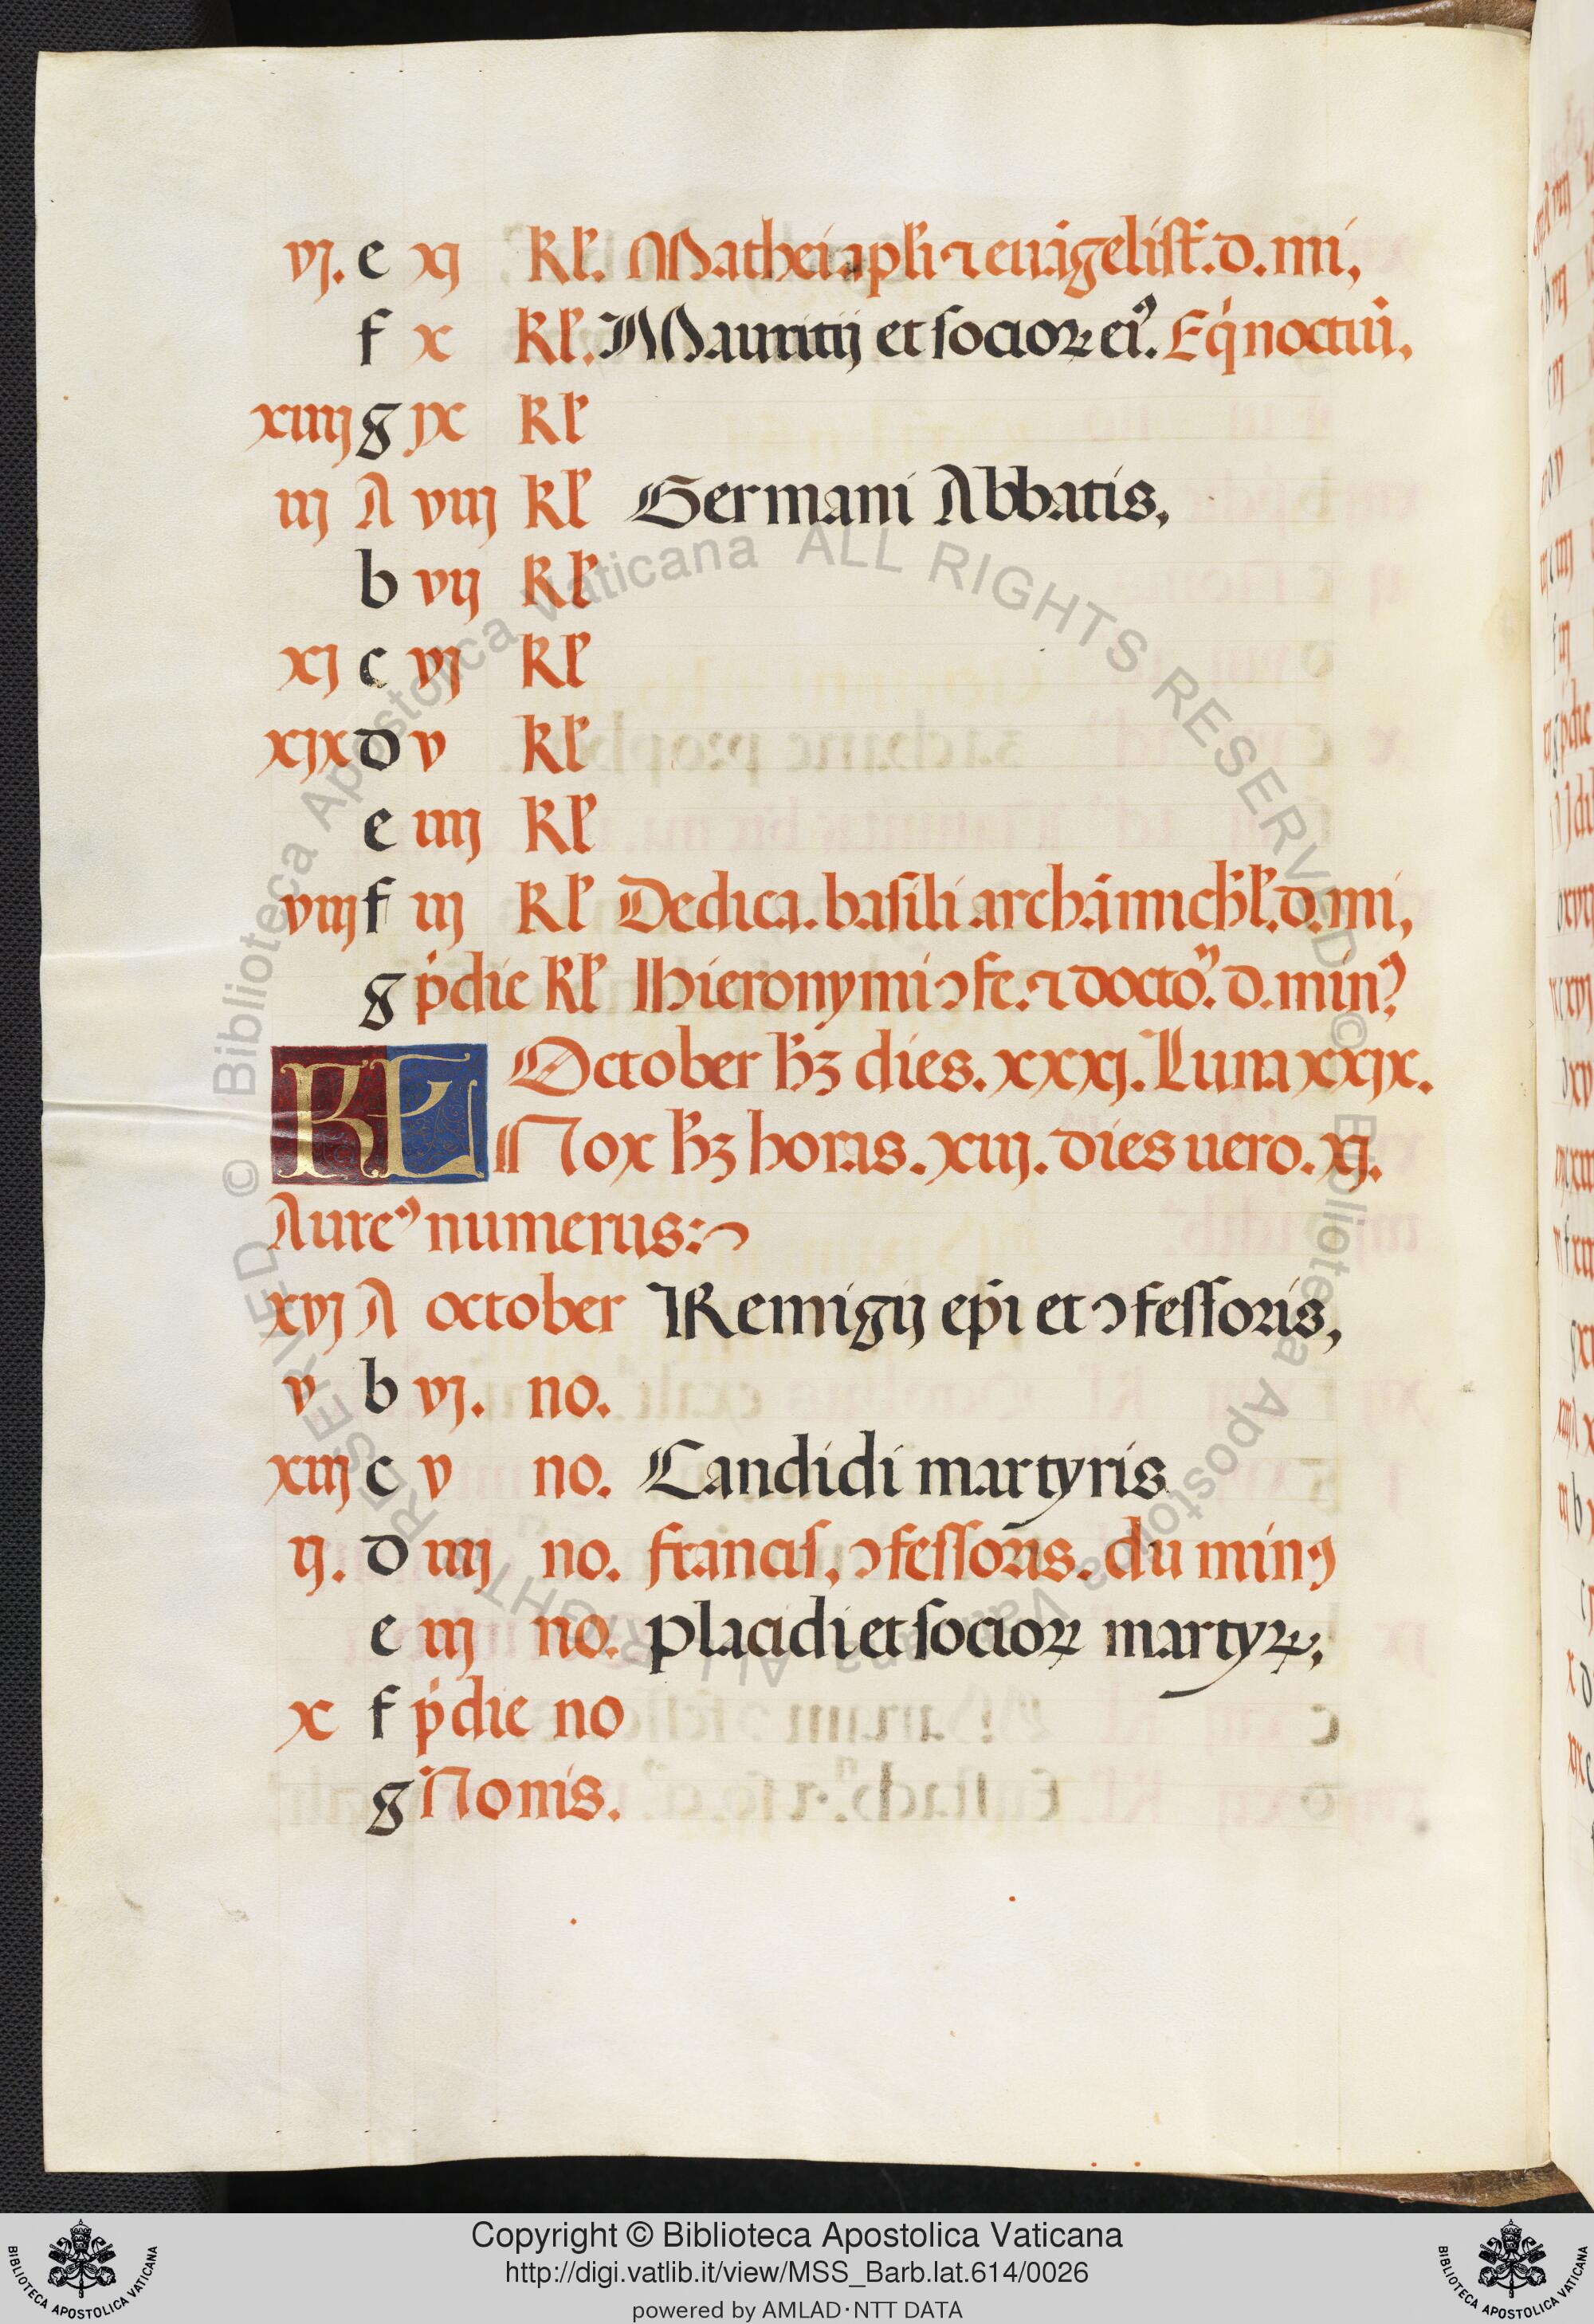 vj. e xj kl̕. Mathei apl̕i ⁊ euãgelist̕. d. mi,
f x kl̕. Mauritij et socioꝝ eiꝰ. Eq̇noctiũ.
xiiij g jx kl̕
iij A viij kl̕ Germani Abbatis,
b vij kl̕
xj c vj kl̕
xjx d v kl̕
e iiij kl̕
viij f iij kl̕ Dedica. basili archãi mich̕l̕. d. mi,
g p̍die kl̕ Hieronymi ↄfe. ⁊ docto᷑. d. minꝰ
KL October hꝫ dies. xxxj. Luna xxjx.
Nox hꝫ horas. xiij. dies uero. xj.
Aureꝰ numerus:~
xvj A october Remigij ep̃i et ↄfessoris,
v b vj. no.
xiij c v no. Candidi martyris
ij. d iiij no. francis, ↄfessoris. du minꝰ
e iij no. placidi et socioꝝ martyꝝ,
x f p̍die no
g Nonis.
© Biblioteca Apostolica Vaticana ALL RIGHTS RESERVED © Biblioteca Apostolica Vaticana ALL RIGHTS RESERVED
Copyright © Biblioteca Apostolica Vaticana
http://digi.vatlib.it/view/MSS_Barb.lat.614/0026
powered by AMLAD·NTT DATA
BIBLIOTECA APOSTOLICA VATICANA
BIBLIOTECA APOSTOLICA VATICANA